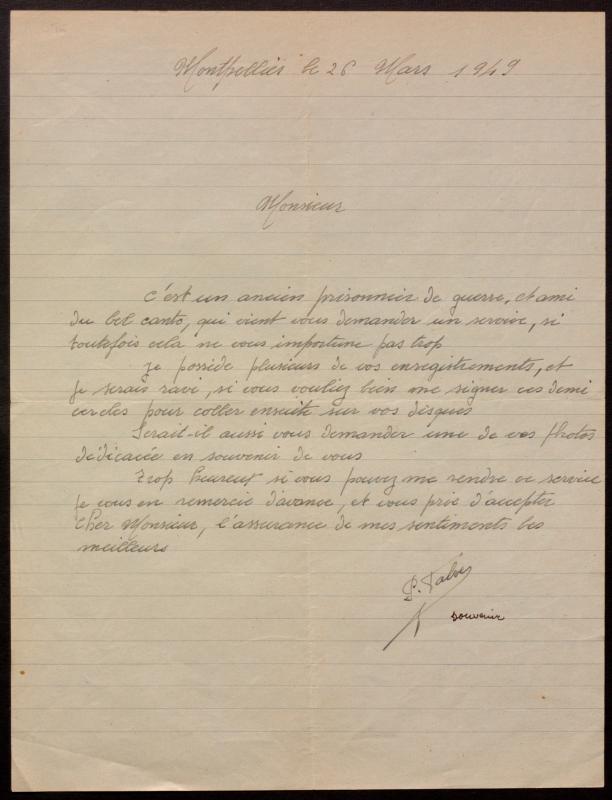 Montpellier le 26 Mars 1949
Monsieur
C'est un ancien prisonnier de guerre, et ami
du bel canto, qui vient vous demander un service, si
toutefois cela ne vous importune pas trop
Je possède plusieurs de vos enregistrements, et
je serais ravi, si vous vouliez bien me signer ces demi
cercles pour coller ensuite sur vos disques
Serait-il aussi vous demander une de vos photos
dedicacée en souvenir de vous
Trop heureux si vous pouvez me rendre ce service
je vous en remercie d'avance, et vous prie d'accepter
Cher Monsieur, l'assurance de mes sentiments les
meilleurs
P.
souvenir